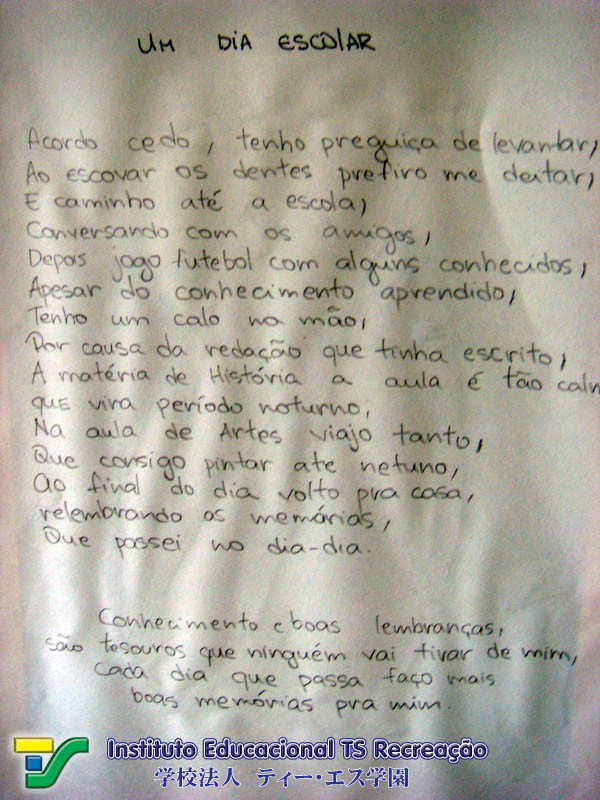 UM DIA ESCOLAR
Acordo cedo, tenho preguiça de levantar,
Ao escovar os dentes prefiro me deitar,
E caminho até a escola,
Conversando com os amigos,
Depois jogo futebol com alguns conhecidos,
Apesar do conhecimento aprendido,
Tenho um calo na mão,
Por causa da redação que tinha escrito,
A matéria de História a aula é tão calm
que vira período noturno,
Na aula de Artes viajo tanto,
Que consigo pintar ate netuno,
Ao final do dia volto pra casa,
relembrando as memórias,
Que passei no dia-dia.
Conhecimento e boas lembranças,
são tesouros que ninguém vai tirar de mim,
Cada dia que passa faço mais
boas memórias pra mim.
Instituto Educacional TS Recreação
学校法人 ティー・エス学園